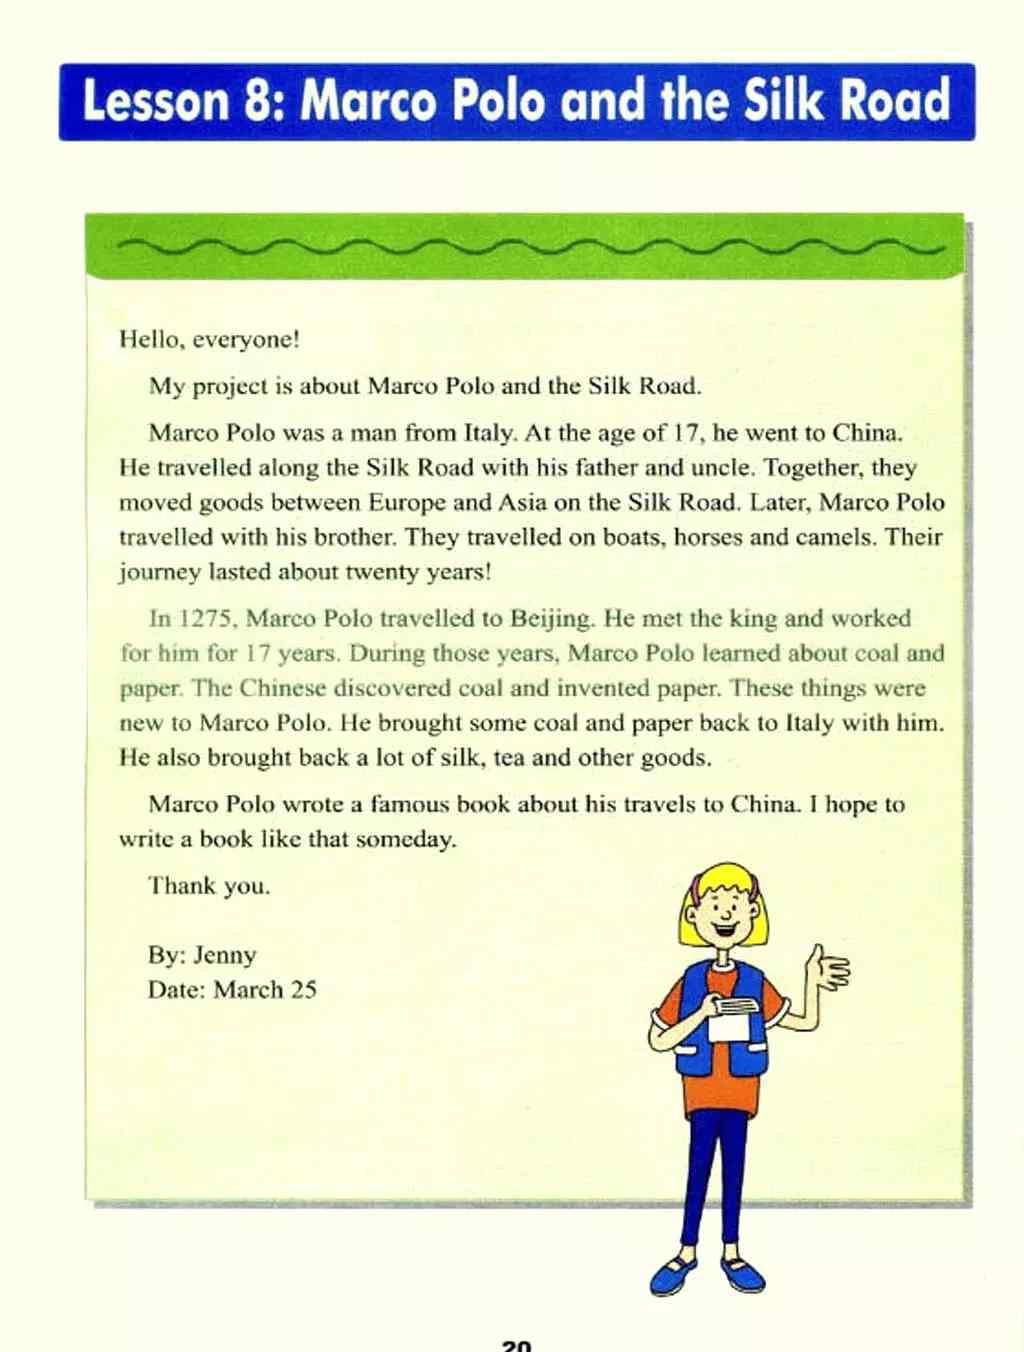 Lesson 8: Marco Polo and the Silk Road
Hello, everyone!
My project is about Marco Polo and the Silk Road.
Marco Polo was a man from Italy. At the age of 17, he went to China.
He travelled along the Silk Road with his father and uncle. Together, they
moved goods between Europe and Asia on the Silk Road. Later, Marco Polo
travelled with his brother. They travelled on boats, horses and camels. Their
journey lasted about twenty years!
In 1275, Marco Polo travelled to Beijing. He met the king and worked
for him for 17 years. During those years, Marco Polo learned about coal and
paper. The Chinese discovered coal and invented paper. These things were
new to Marco Polo. He brought some coal and paper back to Italy with him.
He also brought back a lot of silk, tea and other goods.
Marco Polo wrote a famous book about his travels to China. I hope to
write a book like that someday.
Thank you.
By: Jenny
Date: March 25
20